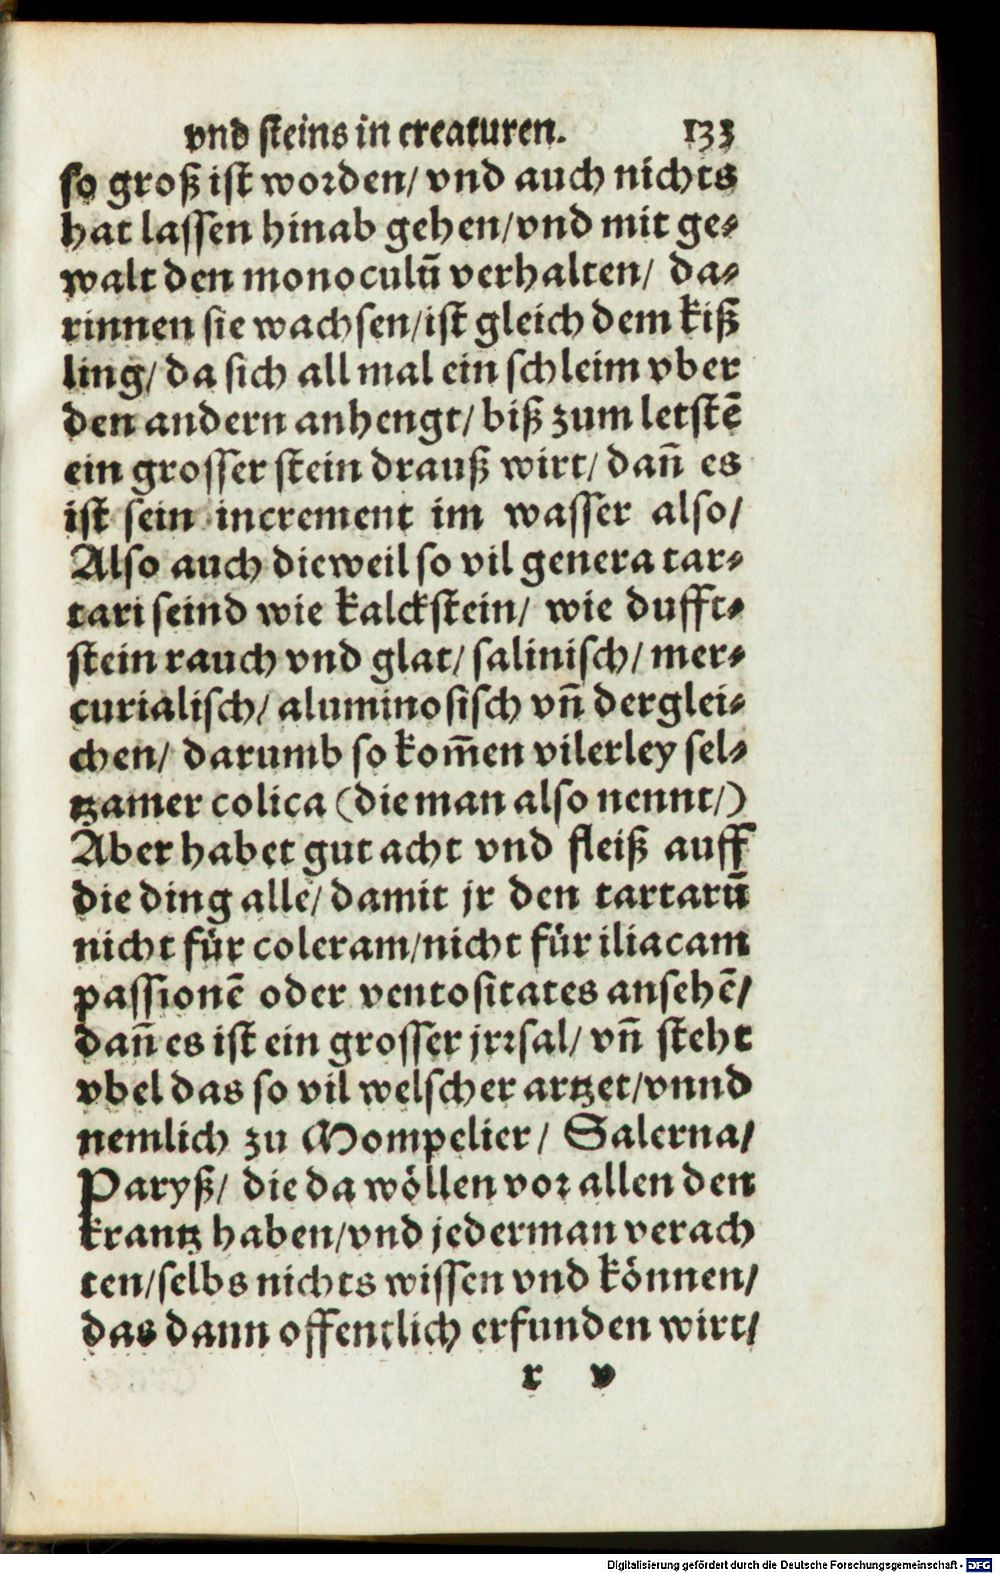 vnd steins in creaturen. 133
so groß ist worden/ vnd auch nichts
hat lassen hinab gehen/vnd mit ge⸗
walt den monoculū verhalten/ da⸗
rinnen sie wachsen/ist gleich dem kiß
ling/ da sich all mal ein schleim vber
den andern anhengt/ biß zum letstē
ein grosser stein drauß wirt/ dañ es
ist sein increment im wasser also/
Also auch dieweil so vil genera tar⸗
tari seind wie kalckstein/ wie dufft⸗
stein rauch vnd glat/ salinisch/ mer⸗
curialisch/ aluminosisch vñ derglei⸗
chen/ darumb so kom̄en vilerley sel⸗
tzamer colica (die man also nennt/)
Aber habet gut acht vnd fleiß auff
die ding alle/ damit jr den tartarū
nicht für coleram/nicht für iliacam
passionē oder ventositates ansehē/
dañ es ist ein grosser jrrsal/ vñ steht
vbel das so vil welscher artzet/vnnd
nemlich zu Mompelier/ Salerna/
Paryß/ die da wöllen vor allen den
krantz haben/vnd jederman verach
ten/selbs nichts wissen vnd können/
das dann offentlich erfunden wirt/
r v
Digitalisierung gefördert durch die Deutsche Forschungsgemeinschaft - DFG